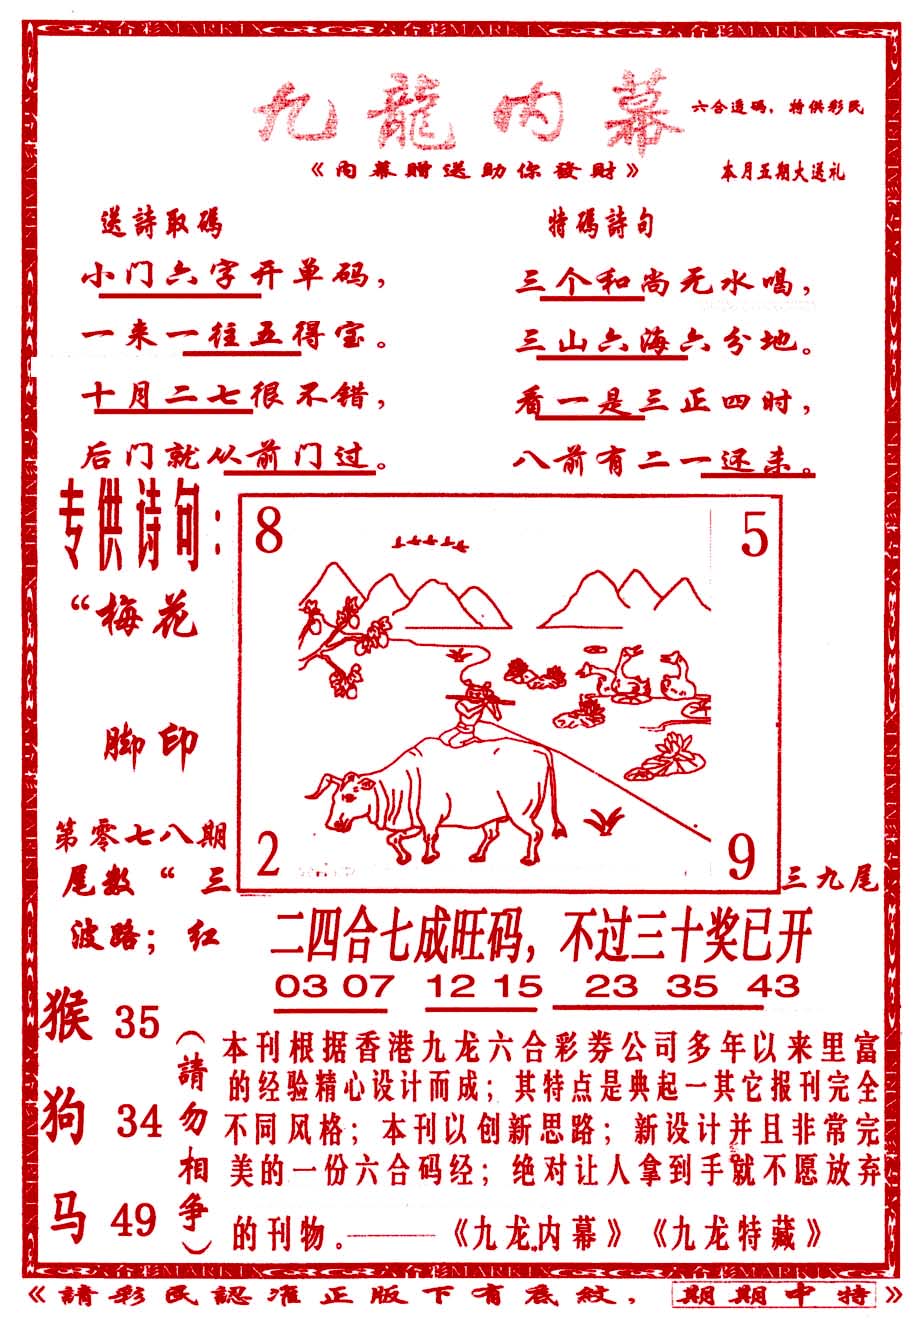 六合彩MARK
九龍内幕
六合透码，特供彩民
《内幕赠送助你發財》
本月五期大送礼
送詩取碼
小门六字开单码，
一来一往五得宝。
十月二七很不错，
后门就从前门过。
特碼詩句
三个和尚无水喝，
三山六海六分地。
看一是三正四时，
八前有二一还来。
专供诗句：
“梅花
脚印
8
5
2
9
第零七八期
尾数“三
三九尾
波路；红
二四合七成旺码，不过三十奖已开
03 07 12 15 23 35 43
猴 35
狗 34
马 49
（請勿相争）
本刊根据香港九龙六合彩券公司多年以来里富
的经验精心设计而成；其特点是典起一其它报刊完全
不同风格；本刊以创新思路；新设计并且非常完
美的一份六合码经；绝对让人拿到手就不愿放弃
的刊物。——《九龙内幕》《九龙特藏》
《請彩民認准正版下有底紋，期期中特》